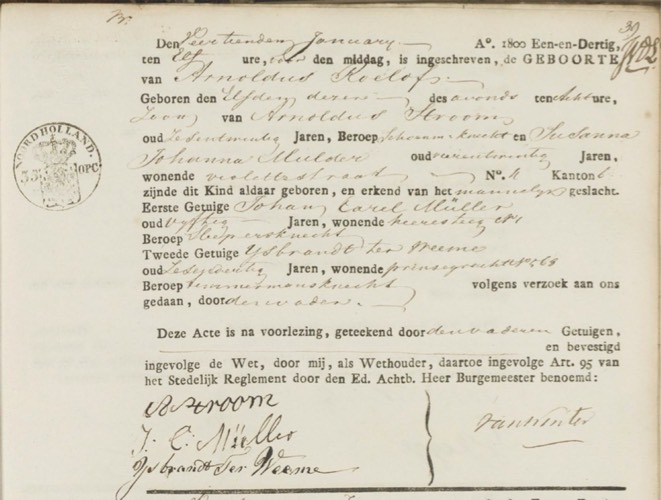 Den Veertienden January A°. 1800 Een-en-Dertig,
39
ten Elf ure, voor den middag, is ingeschreven, de GEBOORTE
van Arnoldus Roelof
Geboren den Elfden dezer des avonds ten Acht ure,
Zoon van Arnoldus Stroom
oud Zesentwintig Jaren, Beroep Schoenmknecht en Susanna
Johanna Mulder oud vierentwintig Jaren,
wonende violettestraat N°. 4 Kanton 6
zijnde dit Kind aldaar geboren, en erkend van het mannelyk geslacht.
Eerste Getuige Johan Carel Müller
oud Vyftig Jaren, wonende heeresteeg N° 1
Beroep Slepersknecht
Tweede Getuige IJsbrandt ter Weeme
oud Jaren, wonende prinsegracht N° 565
Beroep timmermansknecht volgens verzoek aan ons
gedaan, door den vader.
Deze Acte is na voorlezing, geteekend door den vader en Getuigen,
en bevestigd
ingevolge de Wet, door mij, als Wethouder, daartoe ingevolge Art. 95 van
het Stedelijk Reglement door den Ed. Achtb. Heer Burgemeester benoemd:
A Stroom
J. C. Müller
IJsbrandt Ter Weeme
van Winter
NOORD HOLLAND.
OPC